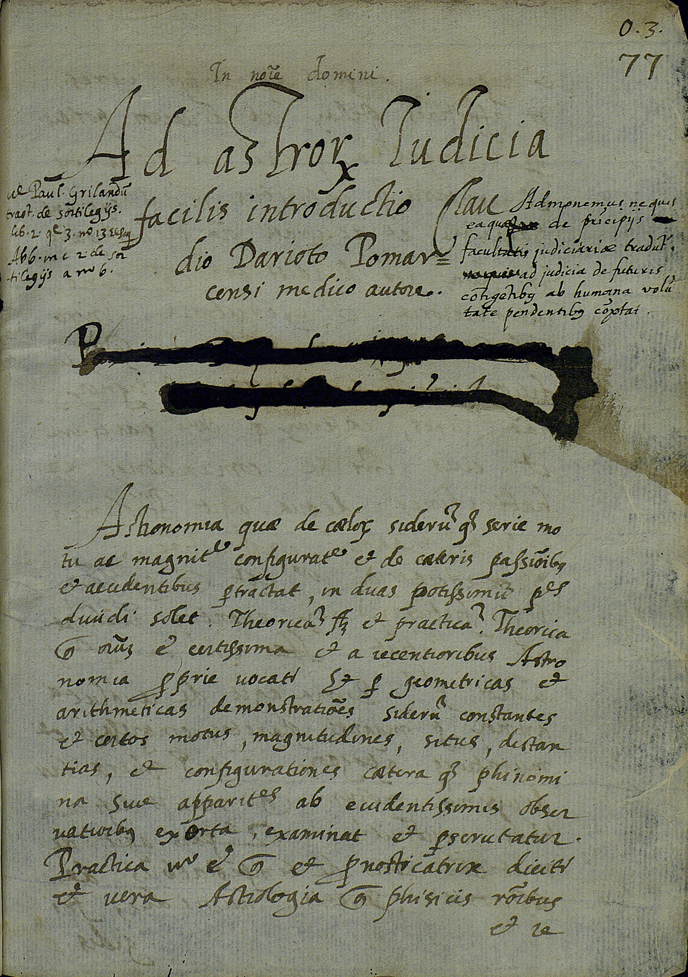 O. 3.
77
In noīe domini.
Ad astror Iudicia
facilis introductio Clau
dio Darioto Pomar=
censi medico autore.
Paul. Grilandū
tract. de sortilegijs.
lib. 2. qe 3. no. 13
Abb. in c. 2 de sor
tilegijs a no 6.
Admonemus ne quis
ea quæ de pricipijs
facultatis judiciariæ tradūt,
ad judicia de futuris
cōtigētibq ab humana volū
tate pendentibq cōptat.
P
Astronomia quæ de cælor siderū qȝ serie mo
tu ac magnite configurate et de cæteris passiōibq
et accidentibus ptractat, in duas potissimū pes
diuidi solet. Theoricā et practicā. Theorica
q oīuȝ ē certissima et a recentioribus Astro
nomia pprie uocatr Et p geometricas et
arithmeticas demonstratiōes siderū constantes
et certos motus, magnitudines, situs, distan
tias, et configurationes cætera qȝ phinomi
na siue apparites ab euidentissimis obser
uatioibq exorta, examinat et pscrutatur.
Practica uo ē q et pnosticatrix dicitr
et uera Astrologia q phisicis rōibus
et re